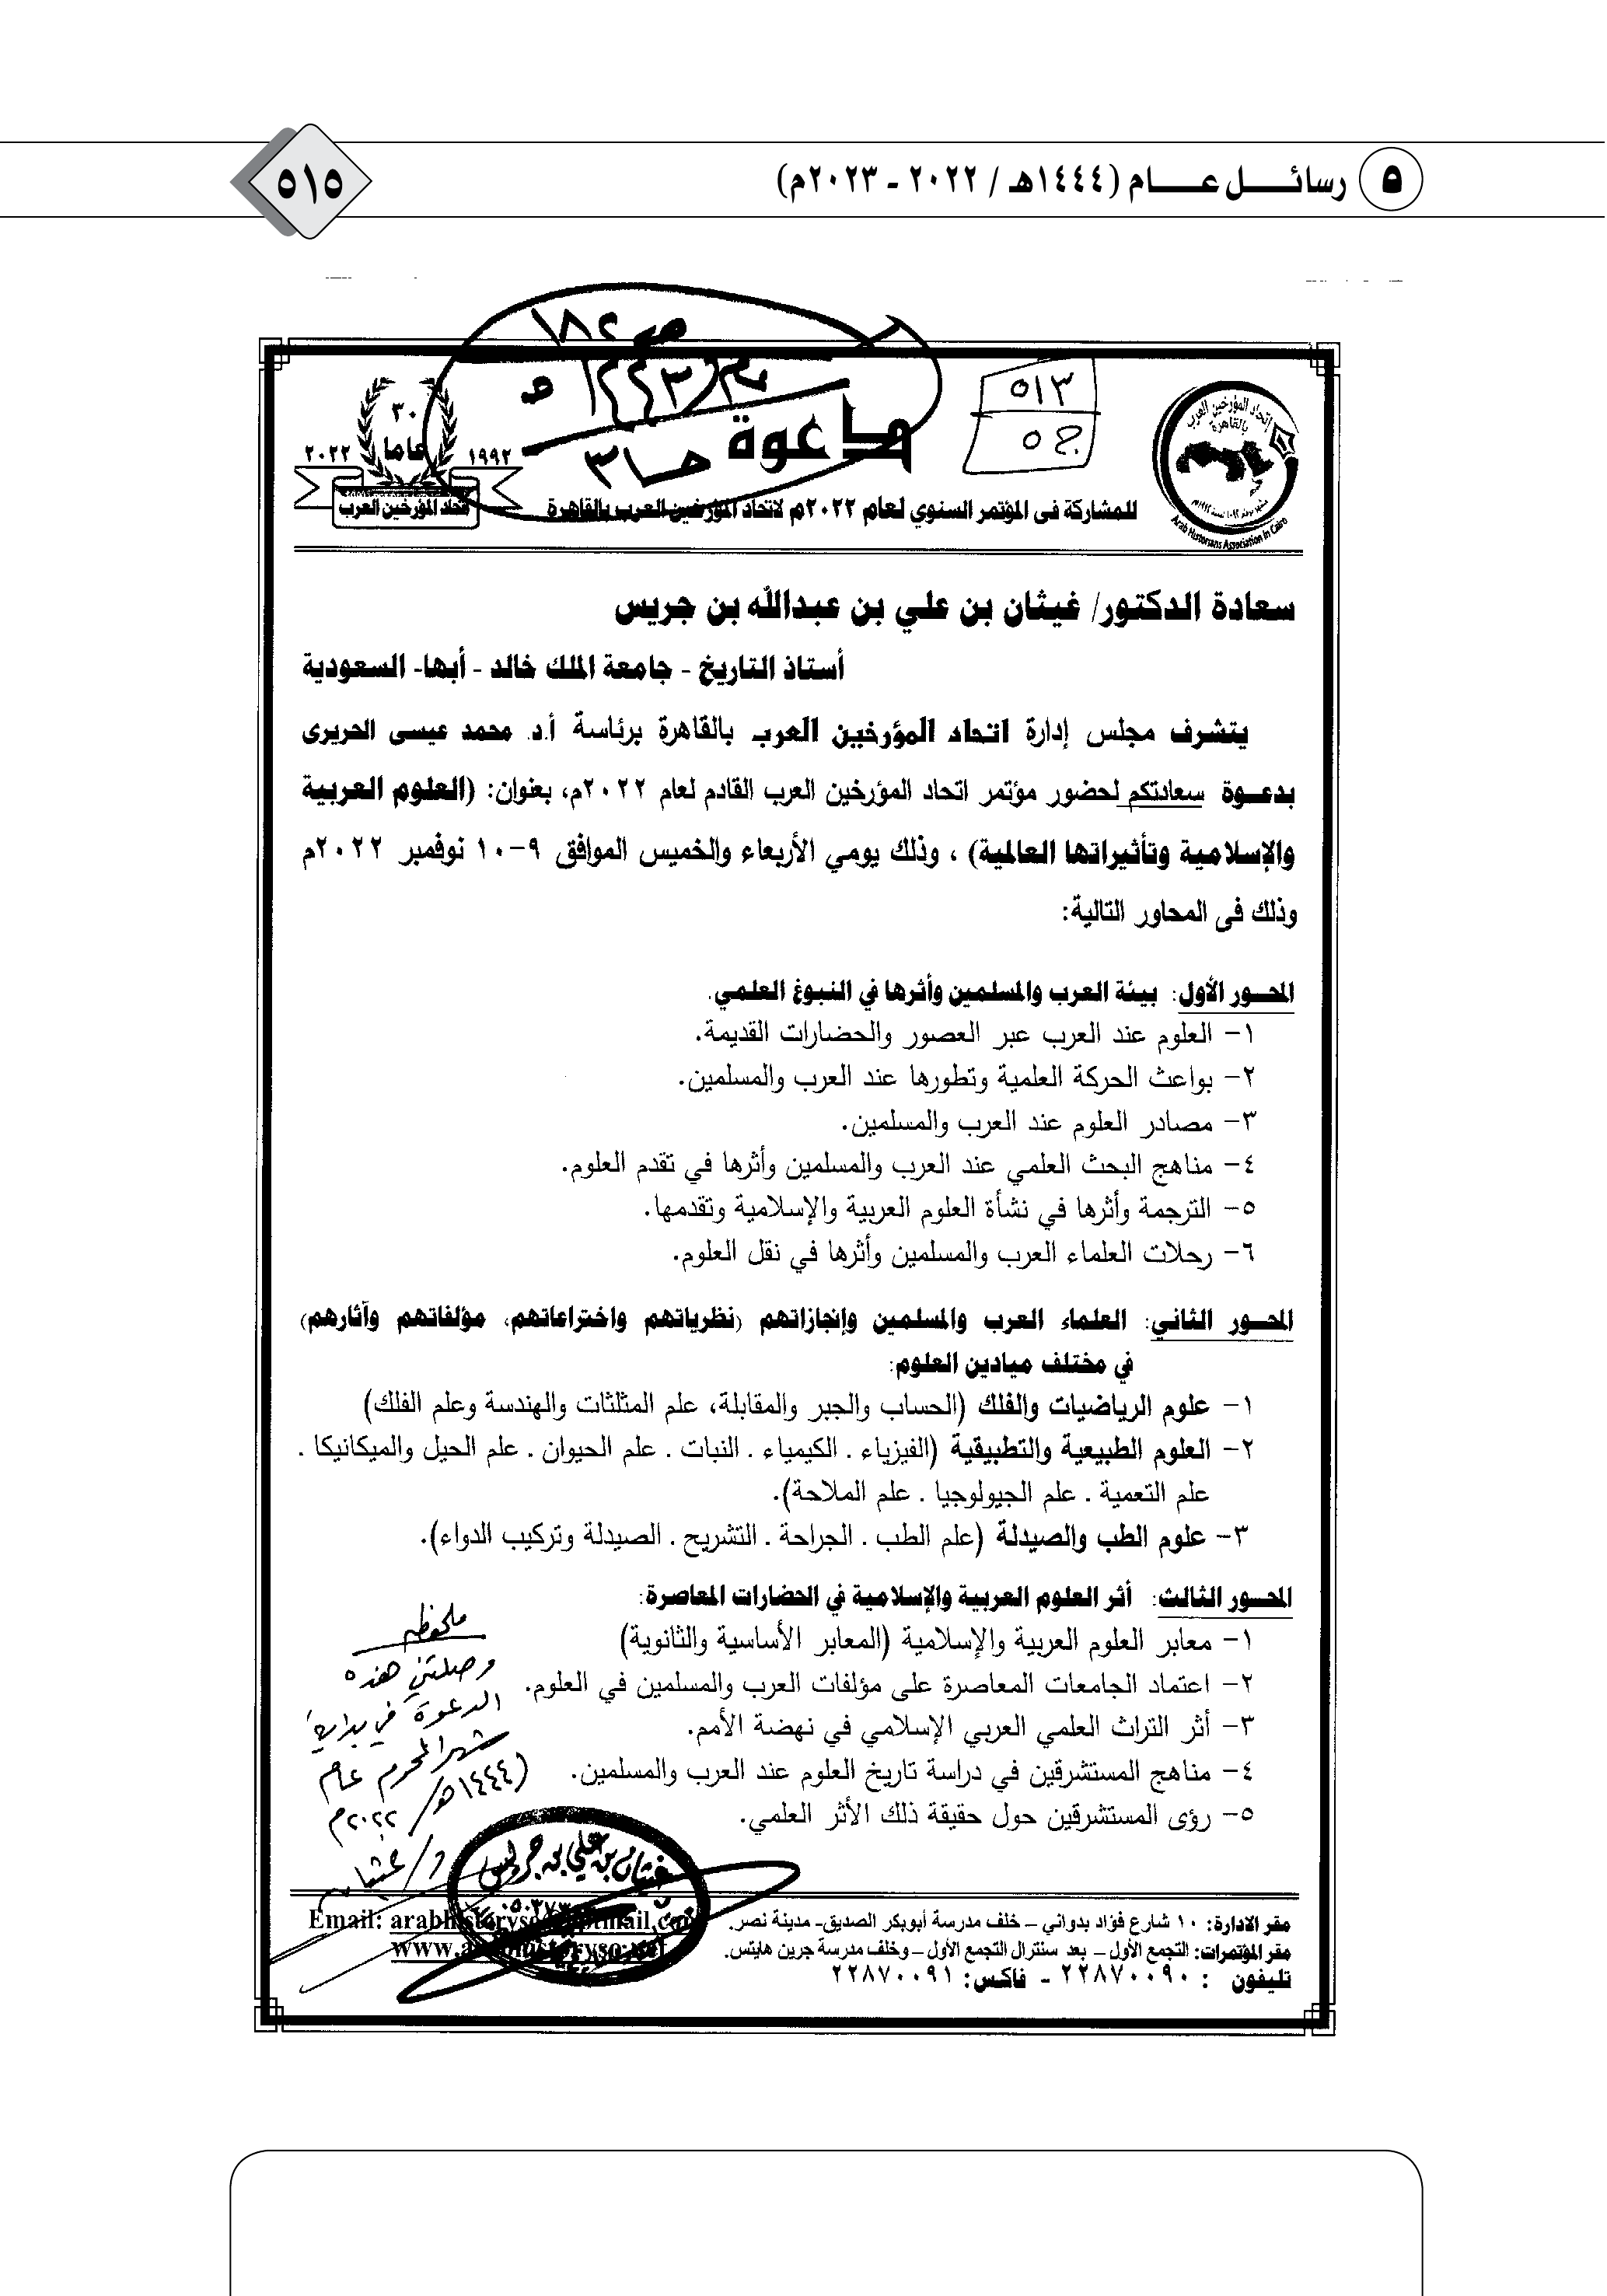 ٥ رسائـــل عـــــام (١٤٤٤هـ / ٢٠٢٢ - ٢٠٢٣م)
٥١٥
٥١٣
ج ٥
اتحاد المؤرخين العرب
بالقاهرة
Arab Historians Association in Cairo
٣٠
عاما
١٩٩٢
٢٠٢٢
اتحاد المؤرخين العرب
دعوة
للمشاركة فى المؤتمر السنوي لعام ٢٠٢٢م لاتحاد المؤرخين العرب بالقاهرة
سعادة الدكتور/ غيثان بن علي بن عبدالله بن جريس
أستاذ التاريخ - جامعة الملك خالد - أبها- السعودية
يتشرف مجلس إدارة اتحاد المؤرخين العرب بالقاهرة برئاسة أ.د. محمد عيسى الحريرى
بدعـوة سعادتكم لحضور مؤتمر اتحاد المؤرخين العرب القادم لعام ٢٠٢٢م، بعنوان: (العلوم العربية
والإسلامية وتأثيراتها العالمية) ، وذلك يومي الأربعاء والخميس الموافق ٩-١٠ نوفمبر ٢٠٢٢م
وذلك فى المحاور التالية:
المحـور الأول: بيئة العرب والمسلمين وأثرها في النبوغ العلمي.
١- العلوم عند العرب عبر العصور والحضارات القديمة.
٢- بواعث الحركة العلمية وتطورها عند العرب والمسلمين.
٣- مصادر العلوم عند العرب والمسلمين.
٤- مناهج البحث العلمي عند العرب والمسلمين وأثرها في تقدم العلوم.
٥- الترجمة وأثرها في نشأة العلوم العربية والإسلامية وتقدمها.
٦- رحلات العلماء العرب والمسلمين وأثرها في نقل العلوم.
المحـور الثاني: العلماء العرب والمسلمين وإنجازاتهم (نظرياتهم واختراعاتهم، مؤلفاتهم وآثارهم)
في مختلف ميادين العلوم:
١- علوم الرياضيات والفلك (الحساب والجبر والمقابلة، علم المثلثات والهندسة وعلم الفلك)
٢- العلوم الطبيعية والتطبيقية (الفيزياء . الكيمياء . النبات . علم الحيوان . علم الحيل والميكانيكا .
علم التعمية . علم الجيولوجيا . علم الملاحة).
٣- علوم الطب والصيدلة (علم الطب . الجراحة . التشريح . الصيدلة وتركيب الدواء).
المحـور الثالث: أثر العلوم العربية والإسلامية في الحضارات المعاصرة:
١- معابر العلوم العربية والإسلامية (المعابر الأساسية والثانوية)
٢- اعتماد الجامعات المعاصرة على مؤلفات العرب والمسلمين في العلوم.
٣- أثر التراث العلمي العربي الإسلامي في نهضة الأمم.
٤- مناهج المستشرقين في دراسة تاريخ العلوم عند العرب والمسلمين.
٥- رؤى المستشرقين حول حقيقة ذلك الأثر العلمي.
ملحوظة
وصلتني هذه
الدعوة في بداية
شهر المحرم عام
(١٤٤٤هـ/
٢٠٢٢م
د/ غيثان
غيثان بن علي بن جريس
مقر الادارة: ١٠ شارع فؤاد بدواني – خلف مدرسة أبوبكر الصديق- مدينة نصر.
مقر المؤتمرات: التجمع الأول – بعد سنترال التجمع الأول – وخلف مدرسة جرين هايتس.
تليفون : ٢٢٨٧٠٠٩٠ - فاكس: ٢٢٨٧٠٠٩١
Email: